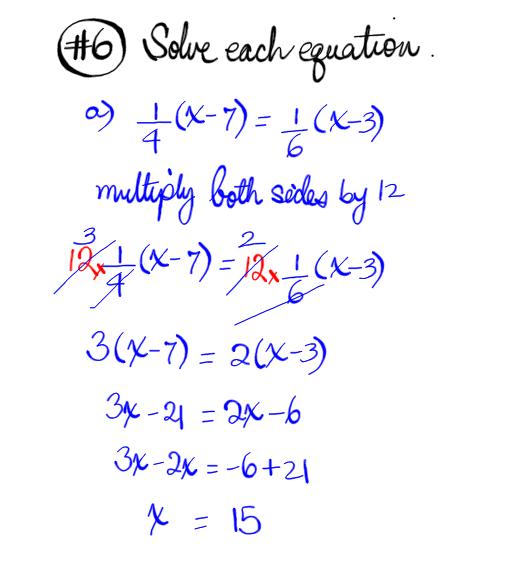 #6 Solve each equation.
a) 1/4 (x-7) = 1/6 (x-3)
multiply both sides by 12
3 2
12 x 1/4 (x-7) = 12 x 1/6 (x-3)
3(x-7) = 2(x-3)
3x-21 = 2x-6
3x-2x = -6+21
x = 15